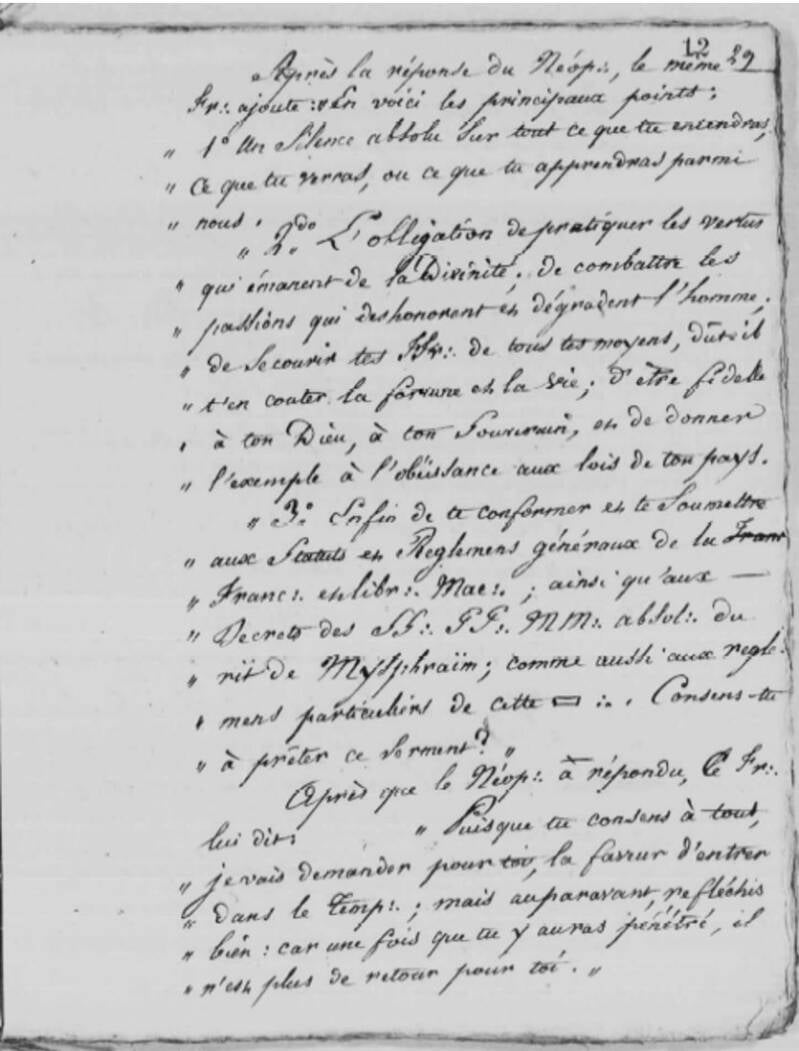 12
Après la réponse du Néop∴, le même 29
Fr∴ ajoute : „ En voici les principaux points :
„ 1° Un Silence absolu sur tout ce que tu entendras,
„ ce que tu verras, ou ce que tu apprendras parmi
„ nous.
„ 2do L'obligation de pratiquer les vertus
„ qui émanent de la Divinité. de combattre les
„ passions qui deshonorent et dégradent l'homme ;
„ de Secourir tes FFr∴ de tous tes moyens, dût-il
„ t'en couter la fortune et la vie ; d'être fidelle
„ à ton Dieu, à ton Souverain, et de donner
„ l'exemple à l'obéissance aux lois de ton pays.
„ 3° Enfin de te conformer et te Soumettre
„ aux Statuts et Reglemens généraux de la Franc
„ Franc∴ et libr∴ Mac∴ ; ainsi qu'aux —
„ Decrets des SS∴ GG∴ MM∴ absol∴ du
„ rit de Mysphraïm ; comme aussi aux regle-
„ mens particuliers de cette ▭ ∴. Consens-tu
„ à prêter ce serment ? „
Après que le Néop∴ à répondu, le Fr∴
lui dit : „ Puisque tu consens à tout,
„ je vais demander pour toi, la faveur d'entrer
„ dans le Temp∴ ; mais auparavant, refléchis
„ bien : car une fois que tu y auras pénétré, il
„ n'est plus de retour pour toi. „